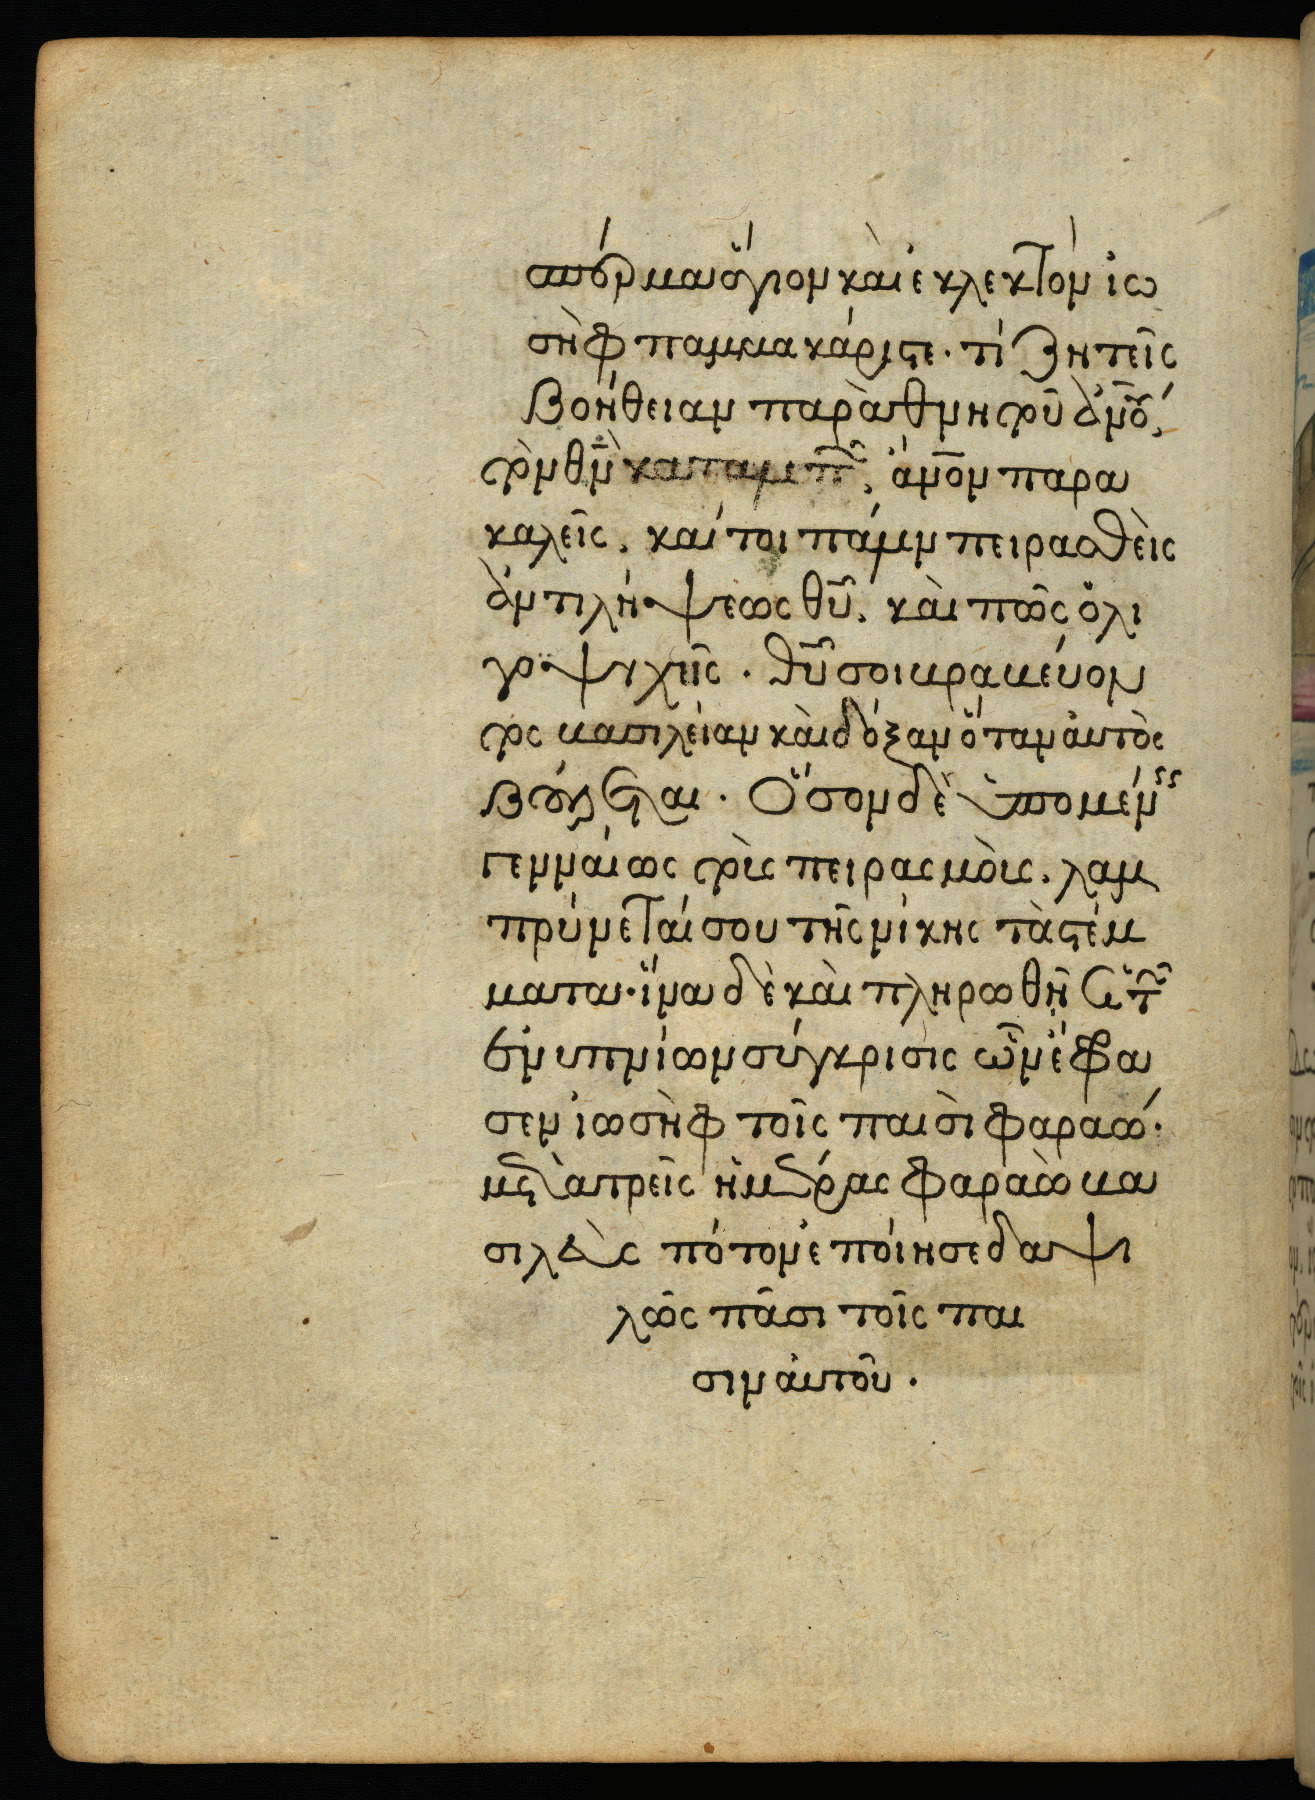 σπέρμα ἅγιον καὶ ἐκλεκτὸν ἰω
σὴφ παμμακάριστε. τί ζητεῖς
βοήθειαν παρὰ θνητοῦ ἀνου,
τὸν θν καταλιπὼν, ἄνον παρα
καλεῖς, καίτοι πάλιν πειραθεὶς
ἀντιλήψεως θυ, καὶ πῶς ὀλι
γοψυχεῖς. θς σοι
τὸς βασιλείαν καὶ δόξαν ὅταν αὐτὸς
βούλεται. Ὅσον δὲ ὑπομένεις
γενναίως τοὺς πειρασμοὺς, λαμ
πρύνεταί σου τῆς νίκης τὰ στέμ
ματα. ἵνα δὲ καὶ πληρωθῇ ἐπὶ
ἐνυπνίων σύγκρισις ὧν ἔφα
σεν ἰωσὴφ τοῖς παισὶ φαραώ.
μετὰ τρεῖς ἡμέρας φαραὼ βα
σιλεὺς πότον ἐποίησε δαψι
λῶς πᾶσι τοῖς παι
σιν αὐτοῦ.